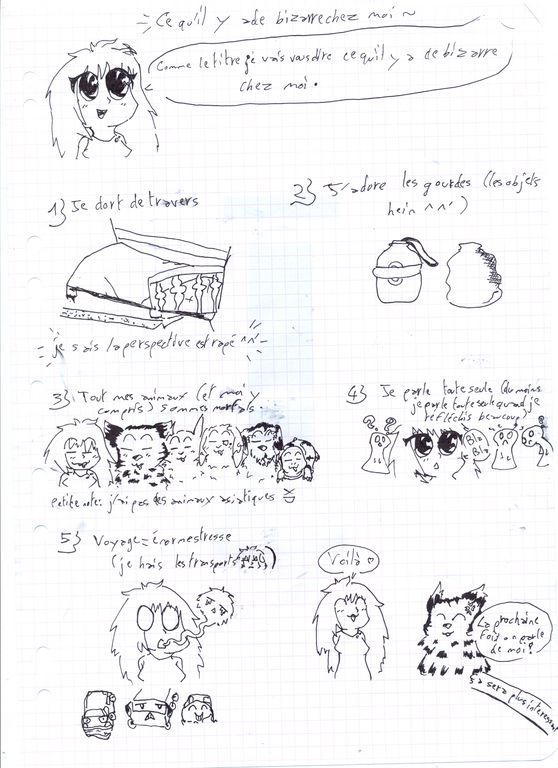 Ce qu'il y a de bizarre chez moi ~
Comme le titre je vais vous dire ce qu'il y a de bizarre
chez moi.
1} Je dort de travers
2} J'adore les gourdes (les objets
hein ^^')
je sais la perspective est rapé ^^'
3} Tout mes animaux (et moi y
compris) sommes
4} Je parle toute seule (du moins
je parle toute seule quand je
réfléchis beaucoup)
Bla
Bla
Petite note: j'ai pas des animaux asiatiques XD
5} Voyage = énorme stresse
(je hais les transports)
Voilà
La prochaine
fois on parle
de moi!
ça sera plus intéressant